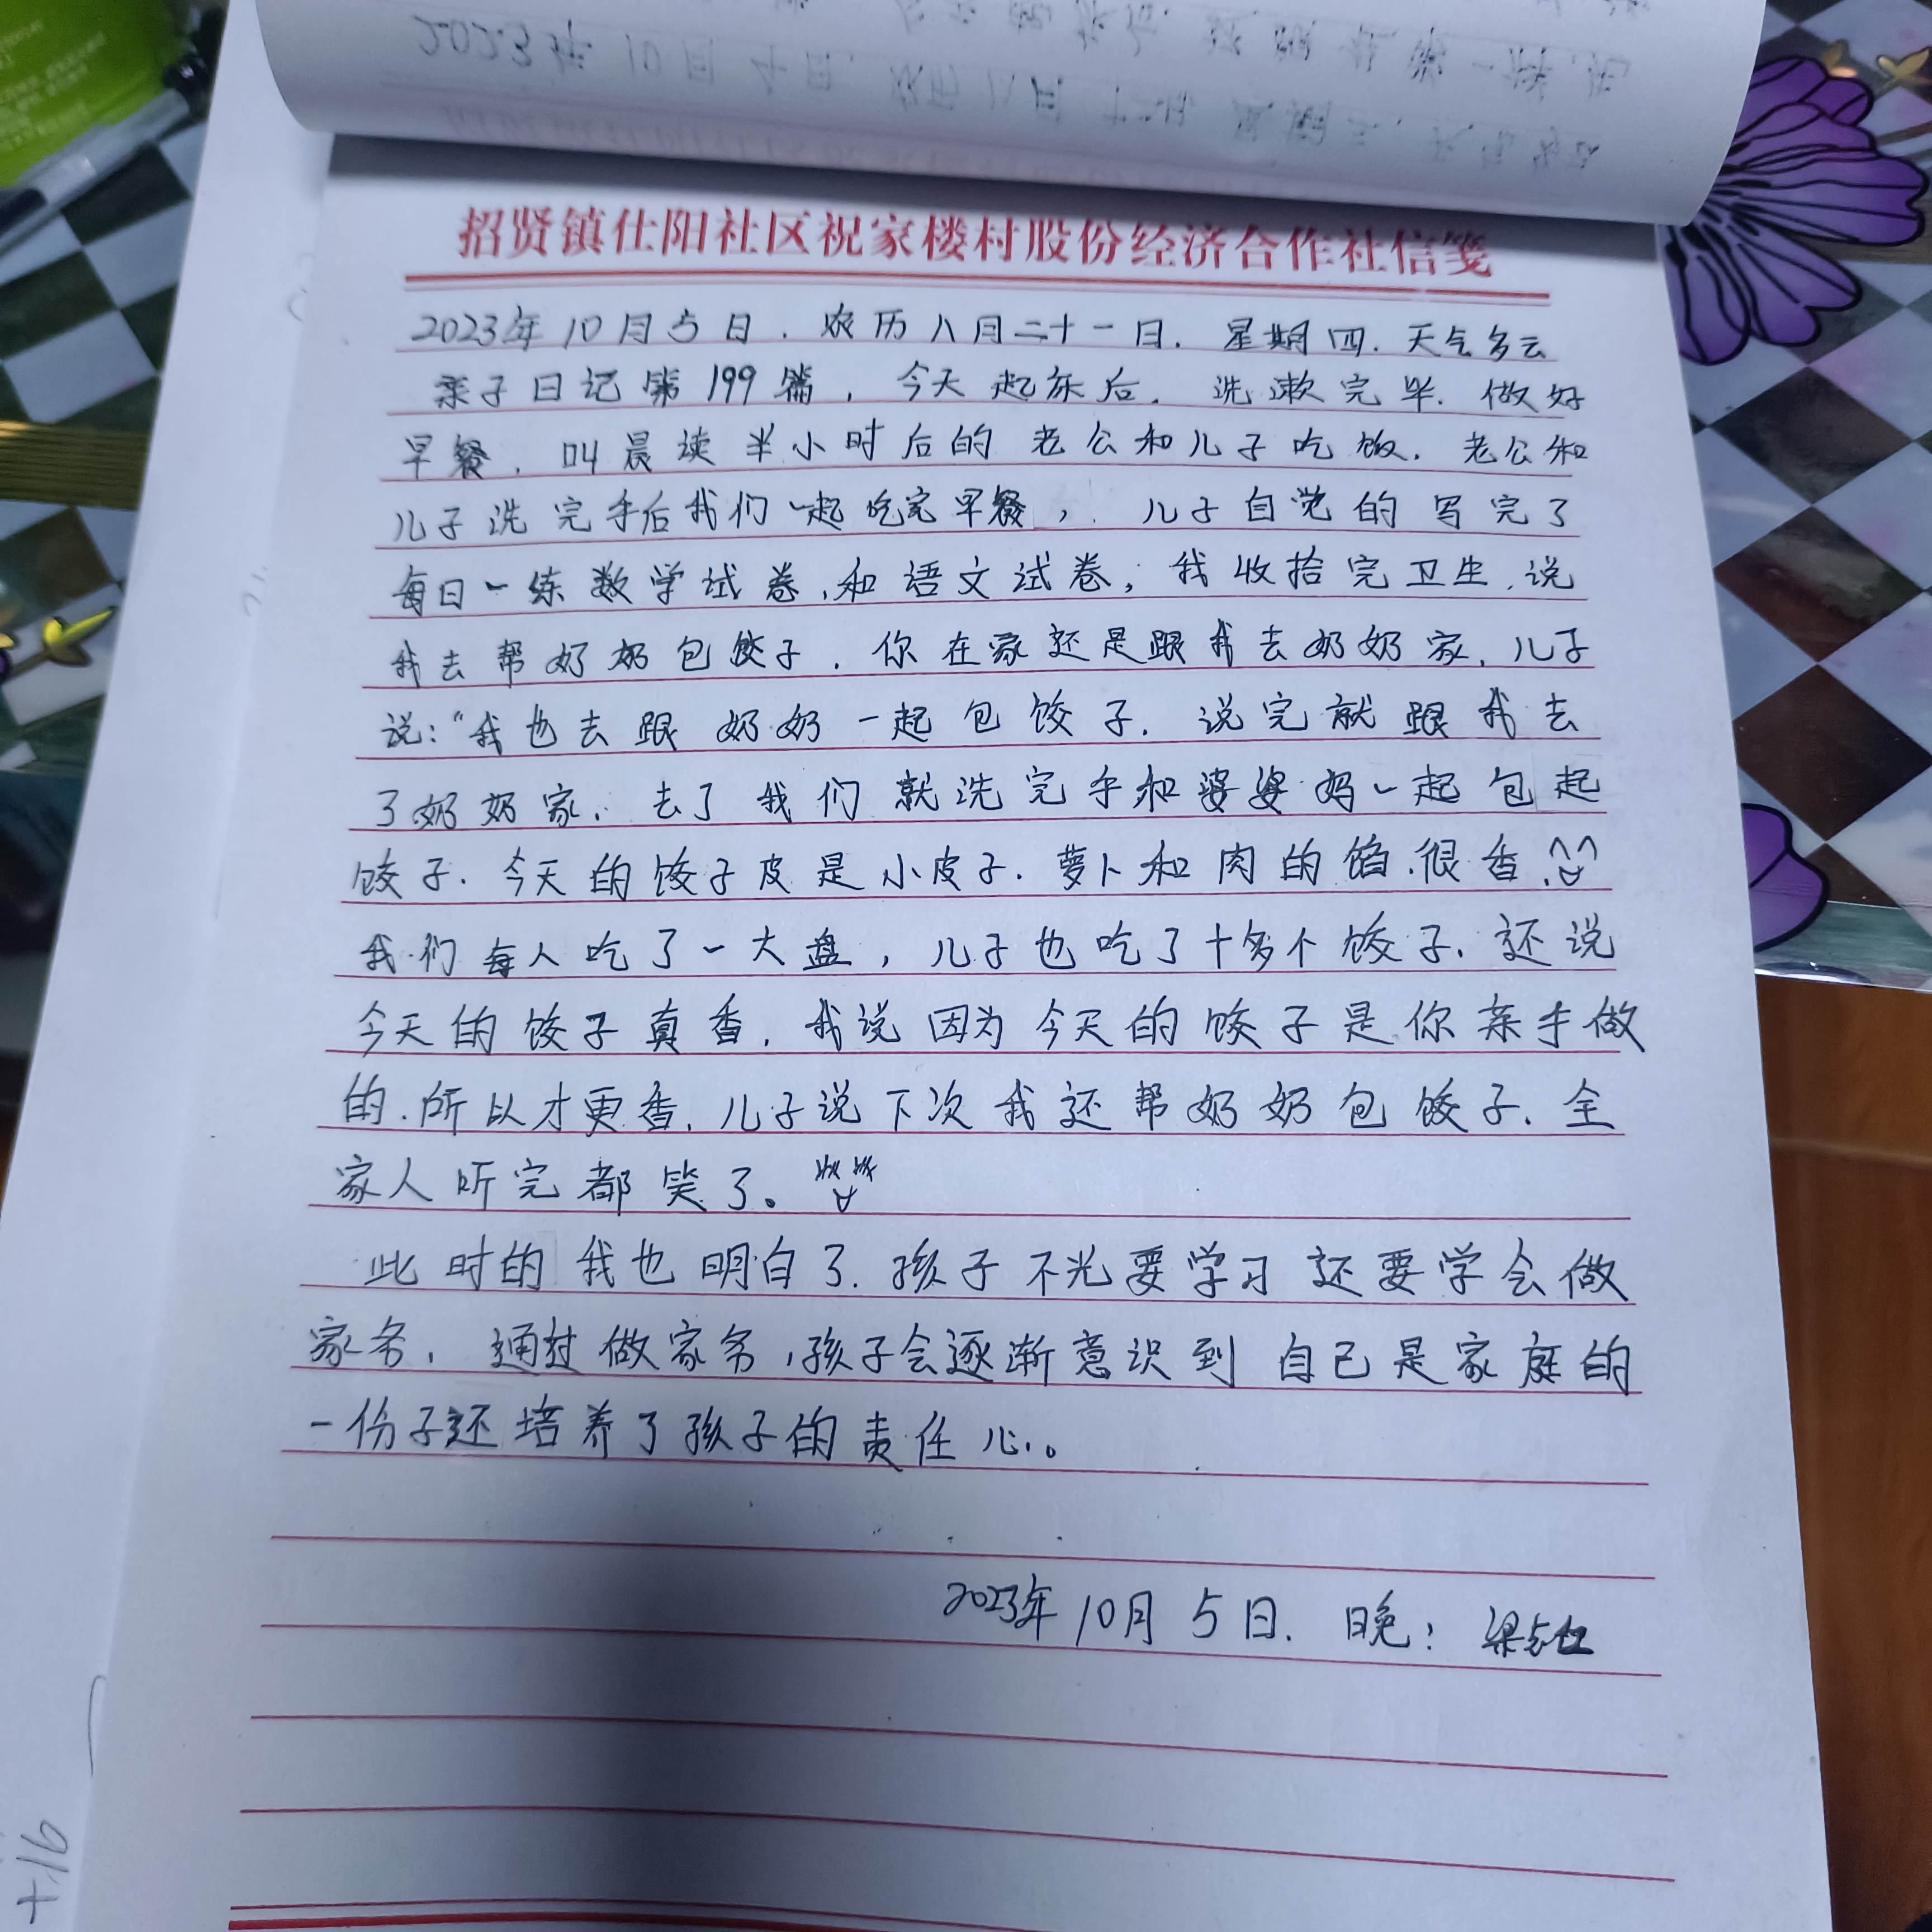 2023年10月4日.农历八月二十
招贤镇仕阳社区祝家楼村股份经济合作社信笺
2023年10月5日.农历八月二十一日.星期四.天气多云
亲子日记第199篇,今天起床后.洗漱完毕.做好
早餐,叫晨读半小时后的老公和儿子吃饭.老公和
儿子洗完手后我们一起吃完早餐,.儿子自觉的写完了
每日一练数学试卷,和语文试卷;我收拾完卫生,说
我去帮奶奶包饺子,你在家还是跟我去奶奶家,儿子
说:“我也去跟奶奶一起包饺子.说完就跟我去
了奶奶家.去了我们就洗完手和婆婆妈一起包起
饺子.今天的饺子皮是小皮子.萝卜和肉的馅.很香.
我们每人吃了一大盘,儿子也吃了十多个饺子.还说
今天的饺子真香,我说因为今天的饺子是你亲手做
的.所以才更香.儿子说下次我还帮奶奶包饺子.全
家人听完都笑了。
此时的我也明白了.孩子不光要学习还要学会做
家务,通过做家务,孩子会逐渐意识到自己是家庭的
一份子还培养了孩子的责任心。
2023年10月5日.晚:梁